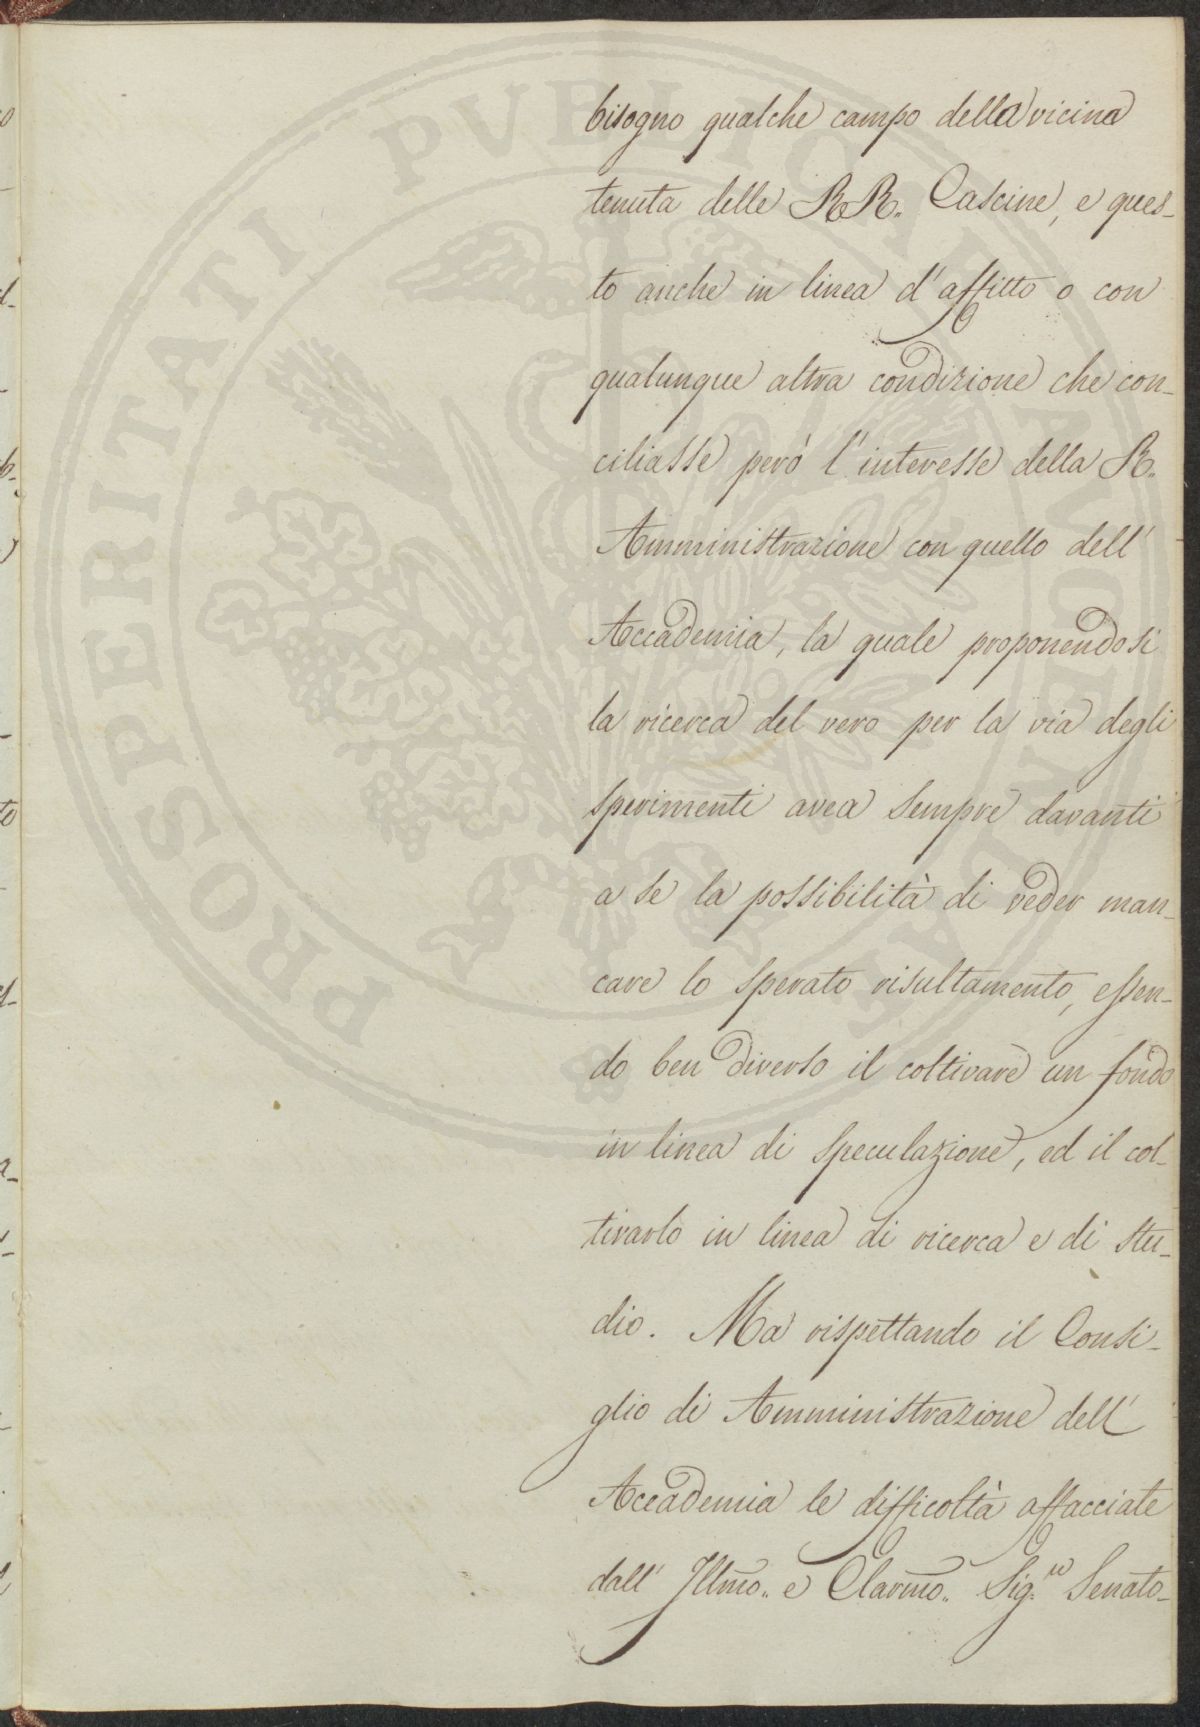 bisogno qualche campo della vicina
tenuta delle RR. Cascine, e ques-
to anche in linea d'affitto o con
qualunque altra condizione che con-
ciliasse però l'interesse della R.
Amministrazione con quello dell'
Accademia, la quale proponendosi
la ricerca del vero per la via degli
sperimenti avea sempre davanti
a se la possibilità di veder man-
care lo sperato risultamento, essen-
do ben diverso il coltivare un fondo
in linea di speculazione, ed il col-
tivarlo in linea di ricerca e di stu-
dio. Ma rispettando il Consi-
glio di Amministrazione dell'
Accademia le difficoltà affacciate
dall' Illmo. e Clarmo. Sig.re Senato-
PROSPERITATI PVBLICAE AVGENDAE